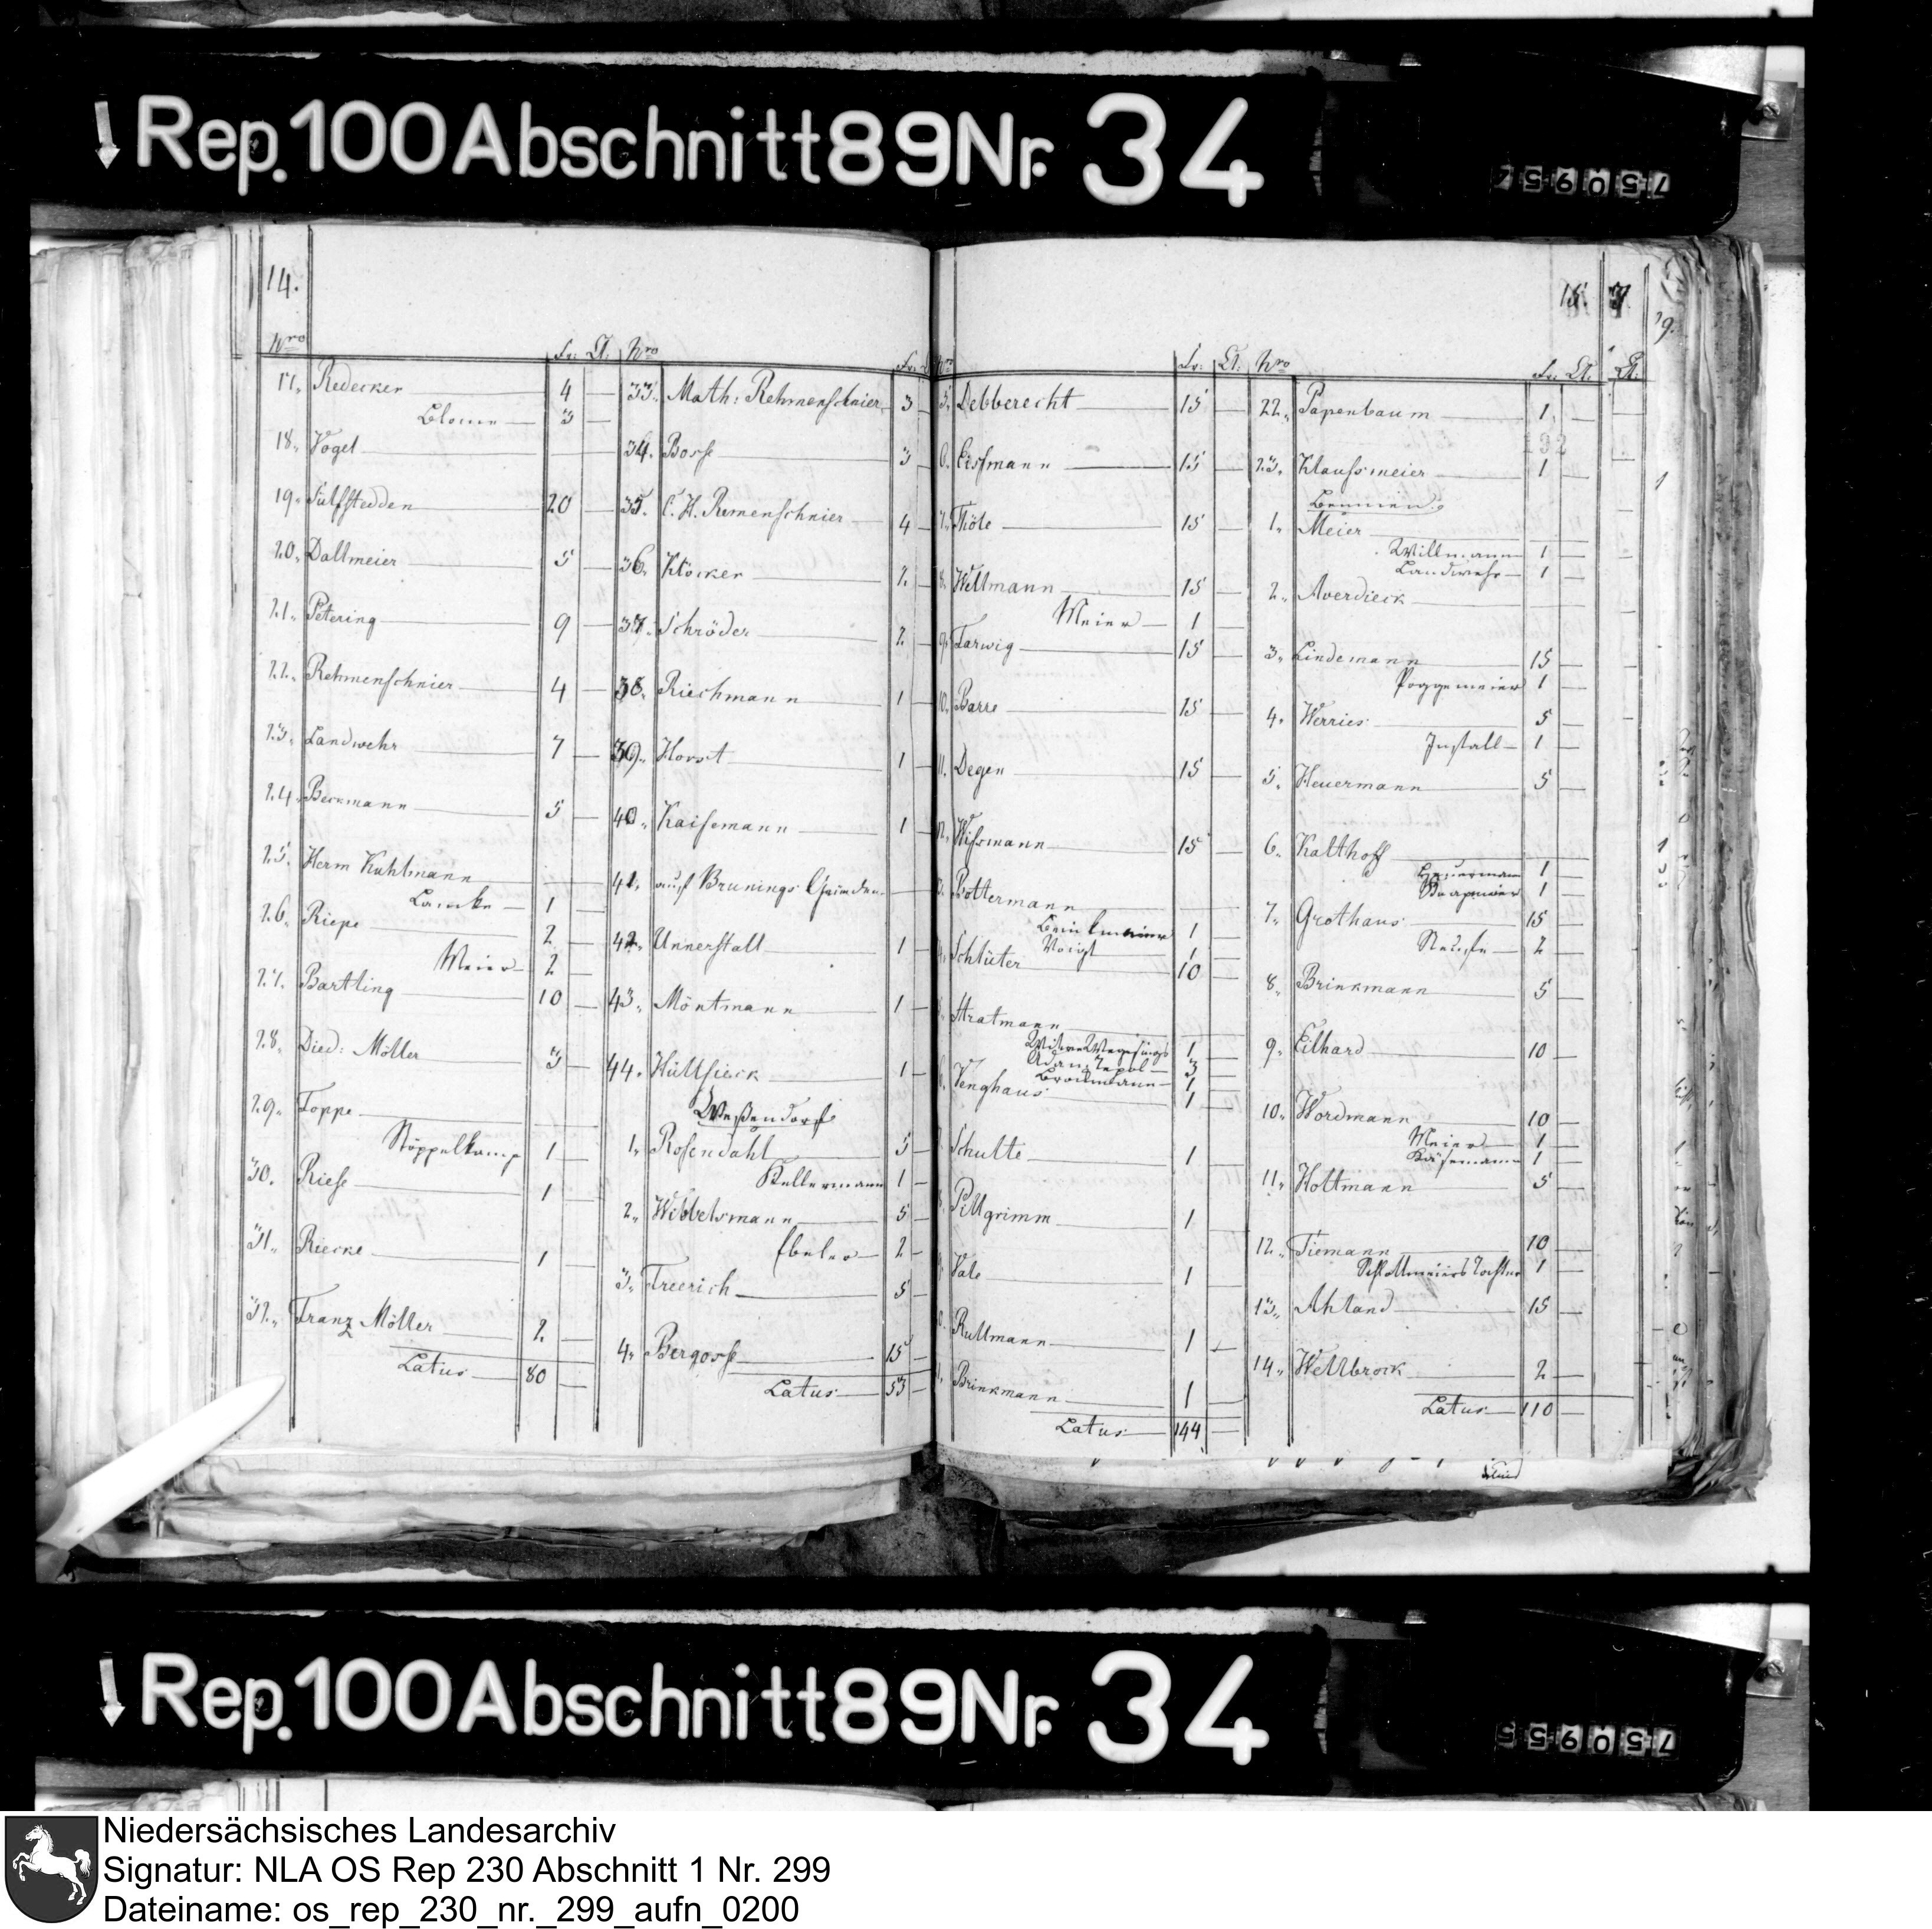 Rep. 100 Abschnitt 89 Nr. 34
750954
14.
Nro Fr: Ct:
17. Redecker 4 —
Blome — 3 —
18. Vogel
19. Fulfstedden 20 —
20. Dallmeier 5 —
21. Petering 9 —
22. Rehmenschnier 4 —
23. Landwehr 7 —
24. Beckmann 5 —
25. Herm Kuhlmann
Lamke — 1 —
26. Riepe 2 —
Meier — 2 —
27. Bartling 10 —
28. Died: Möller 3 —
29. Toppe
Stöppelkamp 1 —
30. Riese 1 —
31. Riecke 1 —
32. Franz Möller 2 —
Latus — 80 —
Nro Fr:
33. Math: Rehmenschnier 3 —
34. Bosse 3 —
35. C. H. Remenschnier 4 —
36. Klöcker 2 —
37. Schröder 2 —
38. Riechmann 1 —
39. Horst 1 —
40. Kaisemann 1 —
41. auf Brunings
42. Unnerstall 1 —
43. Möntmann 1 —
44. Hüttsieck 1 —
Weßendorf
1. Rosendahl 5 —
Kellermann 1 —
2. Wibbelsmann 5 —
Ebeler — 2 —
3. Treerich 5 —
4. Bergosse 15 —
Latus — 53 —
15.
Nro Fr: Ct:
5. Debberecht 15 —
6. Eissmann 15 —
7. Thöle 15 —
8. Wellmann 15 —
Meier — 1 —
9. Tarwig 15 —
10. Barre 15 —
11. Degen 15 —
12. Wissmann 15 —
Pottermann
1 —
Voigt 1 —
Schlüter 10 —
Stratmann
Witwe 1 —
3 —
Brockmann — 1 —
Venghaus 1 —
Schulte 1 —
Pillgrimm 1 —
Vale 1 —
Rullmann 1 —
Brinkmann 1 —
Latus — 144 —
Nro Fr: Ct:
22. Papenbaum 1 —
23. Klaussmeier 1 —
Bennien
1. Meier
Willmann 1 —
Landwehr — 1 —
2. Averdieck
3. Lindemann 15 —
Poggemeier 1 —
4. Werries 5 —
Install — 1 —
5. Heuermann 5 —
6. Kalthoff
Heuermann 1 —
1 —
7. Grothaus 15 —
2 —
8. Brinkmann 5 —
9. Eilhard 10 —
10. Wordmann 10 —
Meier — 1 —
Käsemann 1 —
11. Hottmann 5 —
12. Tiemann 10 —
Schlottmeiers Tochter 1 —
13. Ahland 15 —
14. Wellbrock 2 —
Latus — 110 —
Rep. 100 Abschnitt 89 Nr. 34
750955
Niedersächsisches Landesarchiv
Signatur: NLA OS Rep 230 Abschnitt 1 Nr. 299
Dateiname: os_rep_230_nr._299_aufn_0200